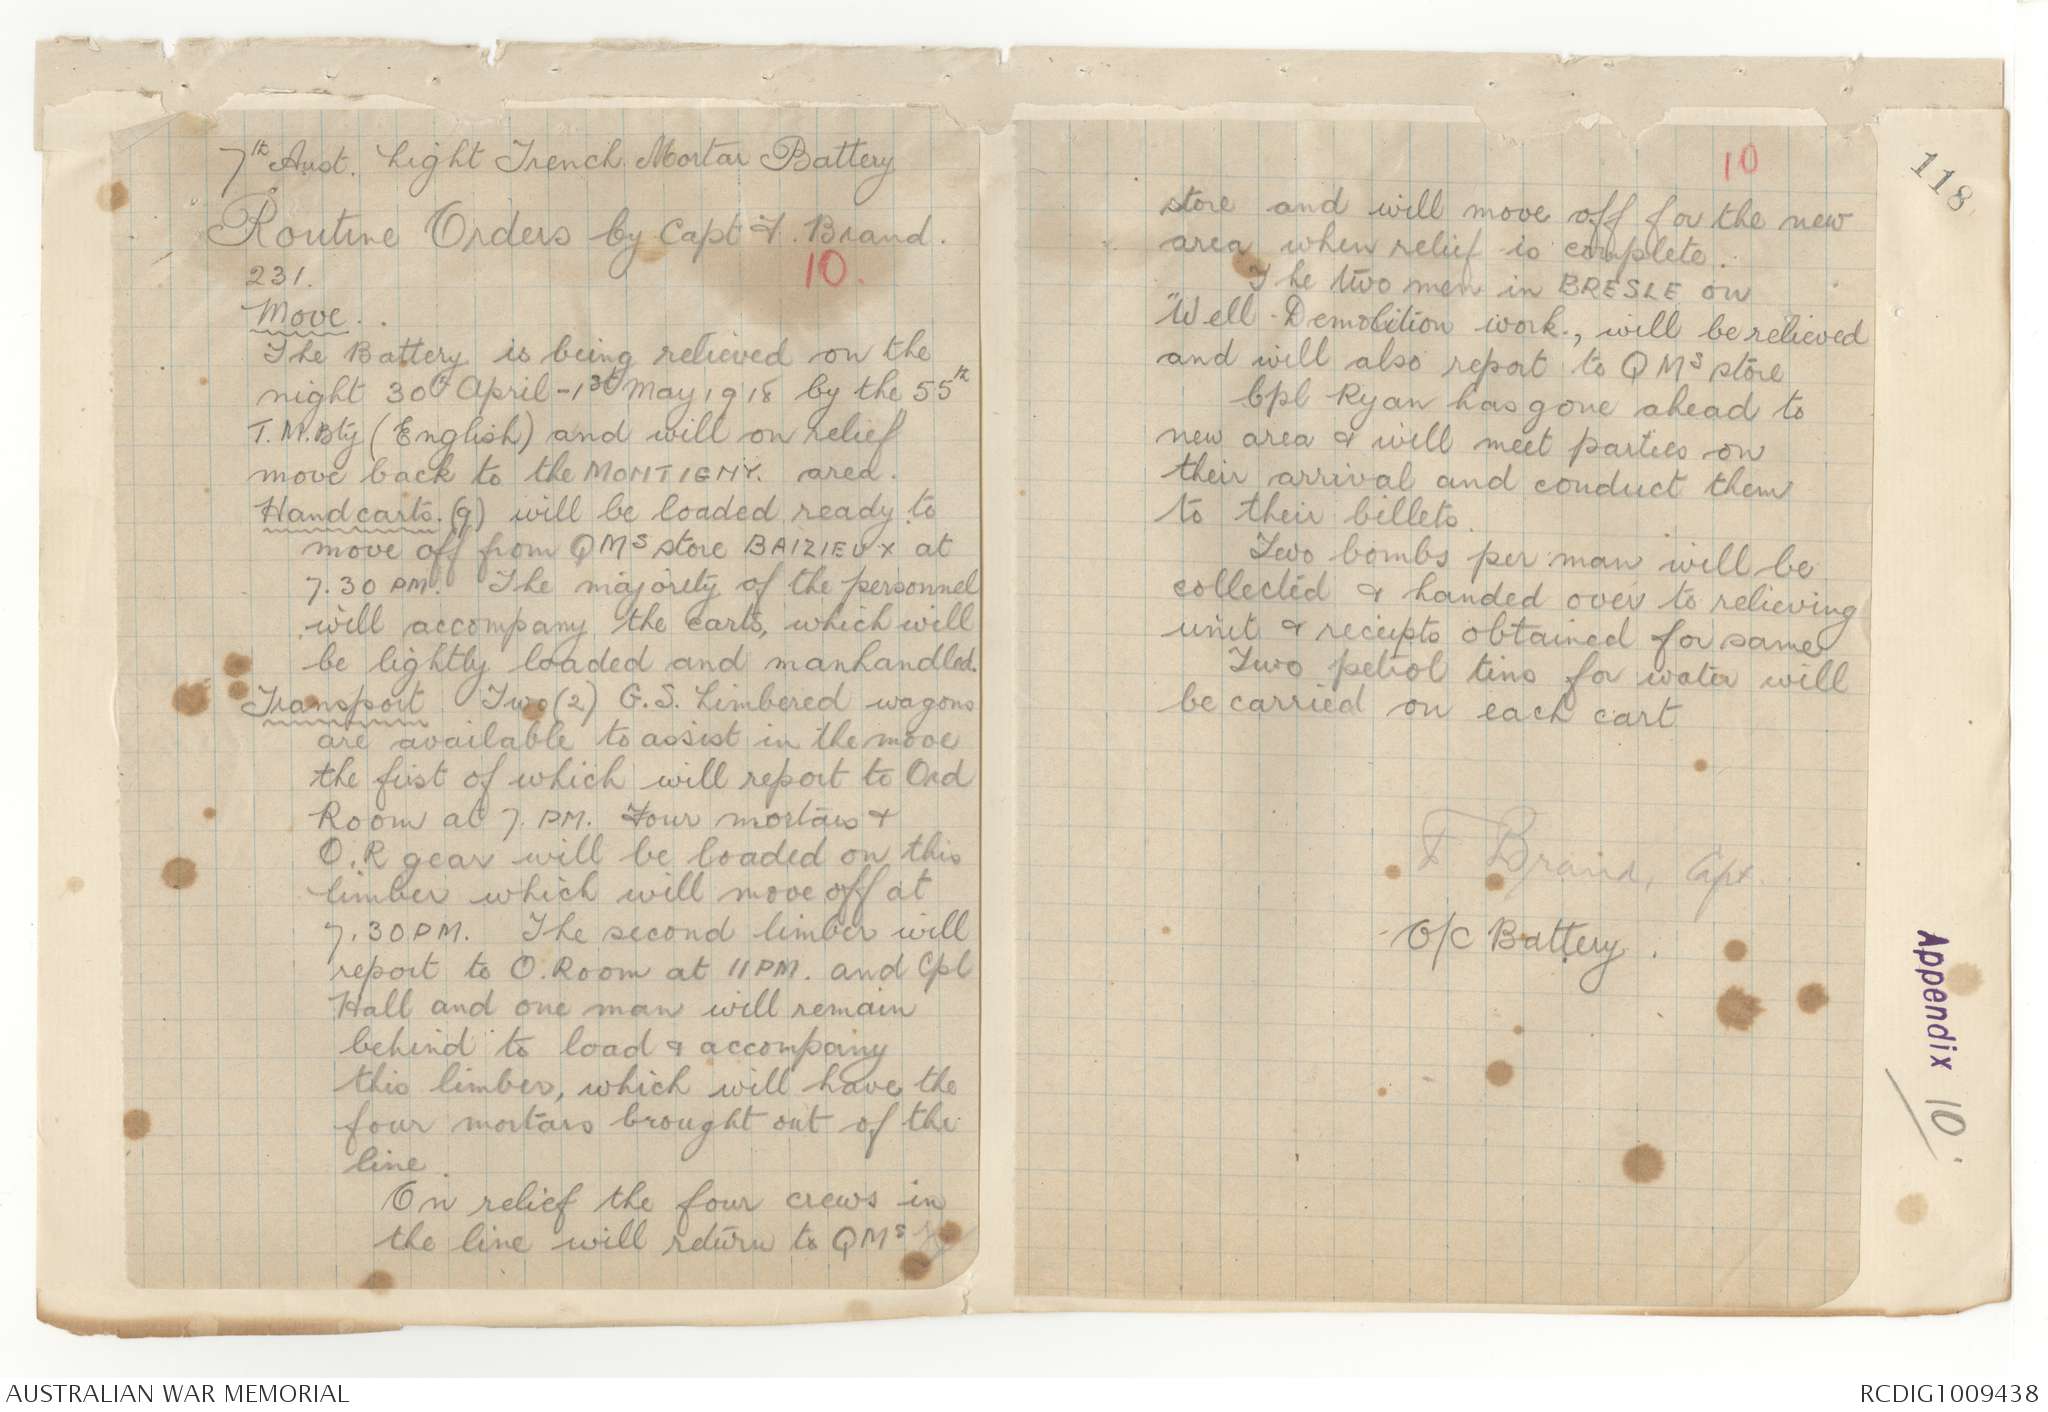 7th Aust. Light Trench Mortar Battery
Routine Orders by Capt F. Brand.
231.
10.
Move.
The Battery is being relieved on the
night 30th April - 1st May 1918 by the 55th
T.M.Bty (English) and will on relief
move back to the MONTIGNY. area.
Handcarts. (9) will be loaded ready to
move off from QMS store BAIZIEUX at
7.30 PM. The majority of the personnel
will accompany the carts, which will
be lightly loaded and manhandled.
Transport Two (2) G.S. Limbered wagons
are available to assist in the move
the first of which will report to Ord
Room at 7. PM. Four mortars &
O.R gear will be loaded on this
limber which will move off at
7.30 PM. The second limber will
report to O.Room at 11PM. and Cpl
Hall and one man will remain
behind to load & accompany
this limber, which will have the
four mortars brought out of the
line.
On relief the four crews in
the line will return to QMS
10
store and will move off for the new
area when relief is complete.
The two men in BRESLE on
"Well-Demolition work., will be relieved
and will also report to QMS store
Cpl Ryan has gone ahead to
new area & will meet parties on
their arrival and conduct them
to their billets.
Two bombs per man will be
collected & handed over to relieving
unit & receipts obtained for same
Two petrol tins for water will
be carried on each cart
F Brand, Capt.
O/C Battery.
118
Appendix 10.
AUSTRALIAN WAR MEMORIAL
RCDIG1009438